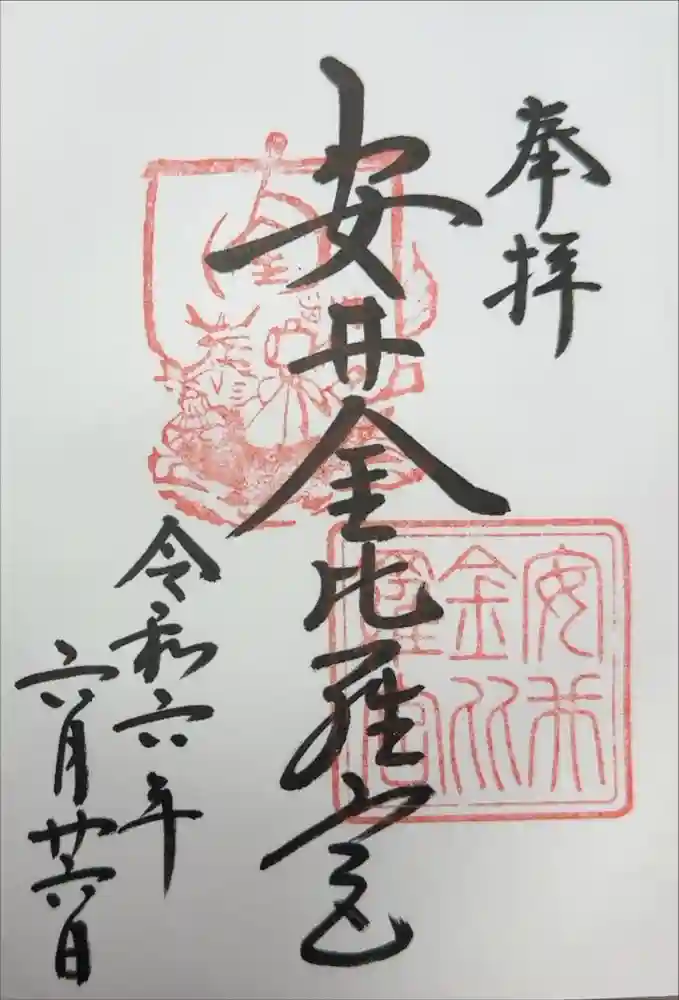 奉拝
安井金比羅宮
令和六年
六月廿六日
安井
金比
羅宮
金